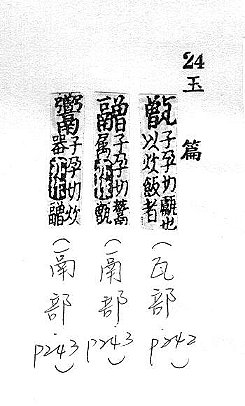 24
玉篇
甑 子孕切甗也
以炊飯者
(瓦部 p242)
䰝 子孕切鬵
属亦作甑
(鬲部 p243)
子孕切炊
器亦作䰝
(鬲部 p243)